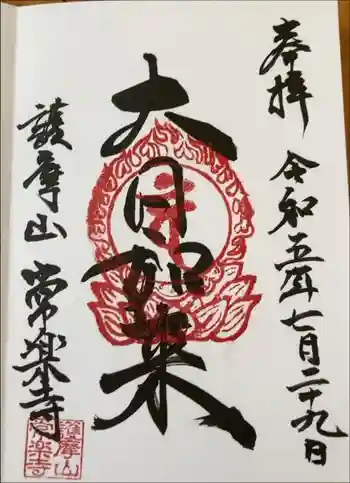 奉拝
令和五年七月二十九日
大日如来
護摩山 常楽寺
護摩山
常楽寺